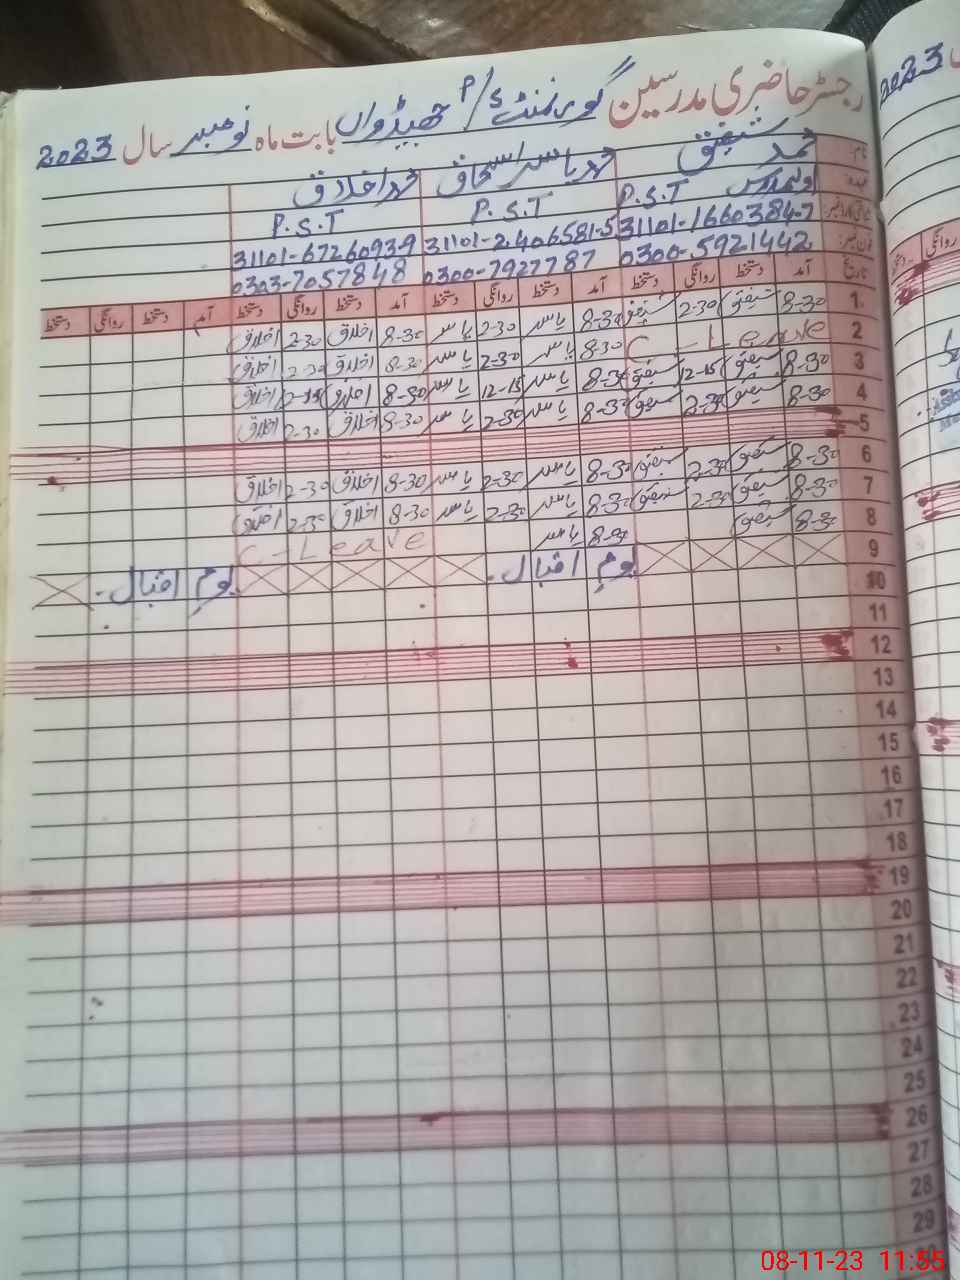 رجسٹر حاضری مدرسین گورنمنٹ P/S بابت ماہ نومبر سال 2023
نام: محمد شفیق محمد یاسر اسحاق محمد اخلاق
عہدہ: P.S.T P.S.T P.S.T
شناختی کارڈ نمبر: 31101-1660384-7 31101-2406581-5 31101-6726093-9
فون نمبر: 0300-5921442 0300-7927787 0303-7057848
تاریخ آمد دستخط روانگی دستخط آمد دستخط روانگی دستخط آمد دستخط روانگی دستخط آمد دستخط روانگی دستخط
1 8-30 شفیق 2-30 شفیق 8-30 یاسر 2-30 یاسر 8-30 اخلاق 2-30 اخلاق
2 C - Leave 8-30 یاسر 2-30 یاسر 8-30 اخلاق 2-30 اخلاق
3 8-30 شفیق 12-15 شفیق 8-30 یاسر 12-15 یاسر 8-30 اخلاق اخلاق
4 8-30 شفیق 2-30 شفیق 8-30 یاسر 2-30 یاسر 8-30 اخلاق 2-30 اخلاق
5
6 8-30 شفیق 2-30 شفیق 8-30 یاسر 2-30 یاسر 8-30 اخلاق 2-30 اخلاق
7 8-30 شفیق 2-30 شفیق 8-30 یاسر 2-30 یاسر 8-30 اخلاق 2-30 اخلاق
8 8-30 شفیق 8-30 یاسر C-Leave
9 یوم اقبال - یوم اقبال -
10
11
12
13
14
15
16
17
18
19
20
21
22
23
24
25
26
27
28
29
2023
روانگی
08-11-23 11:55